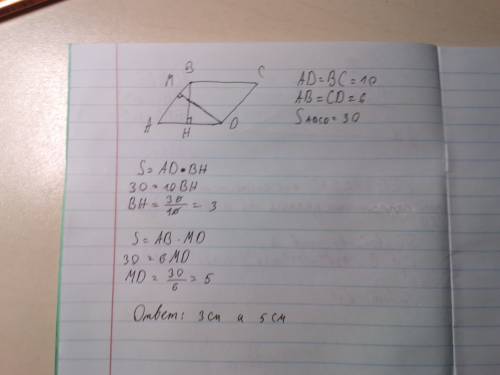 B
C
M
A
H
D
AD=BC=10
AB=CD=6
S ABCD=30
S=AD•BH
30=10BH
BH=30/10=3
S=AB·MD
30=6MD
MD=30/6=5
Ответ: 3см и 5см